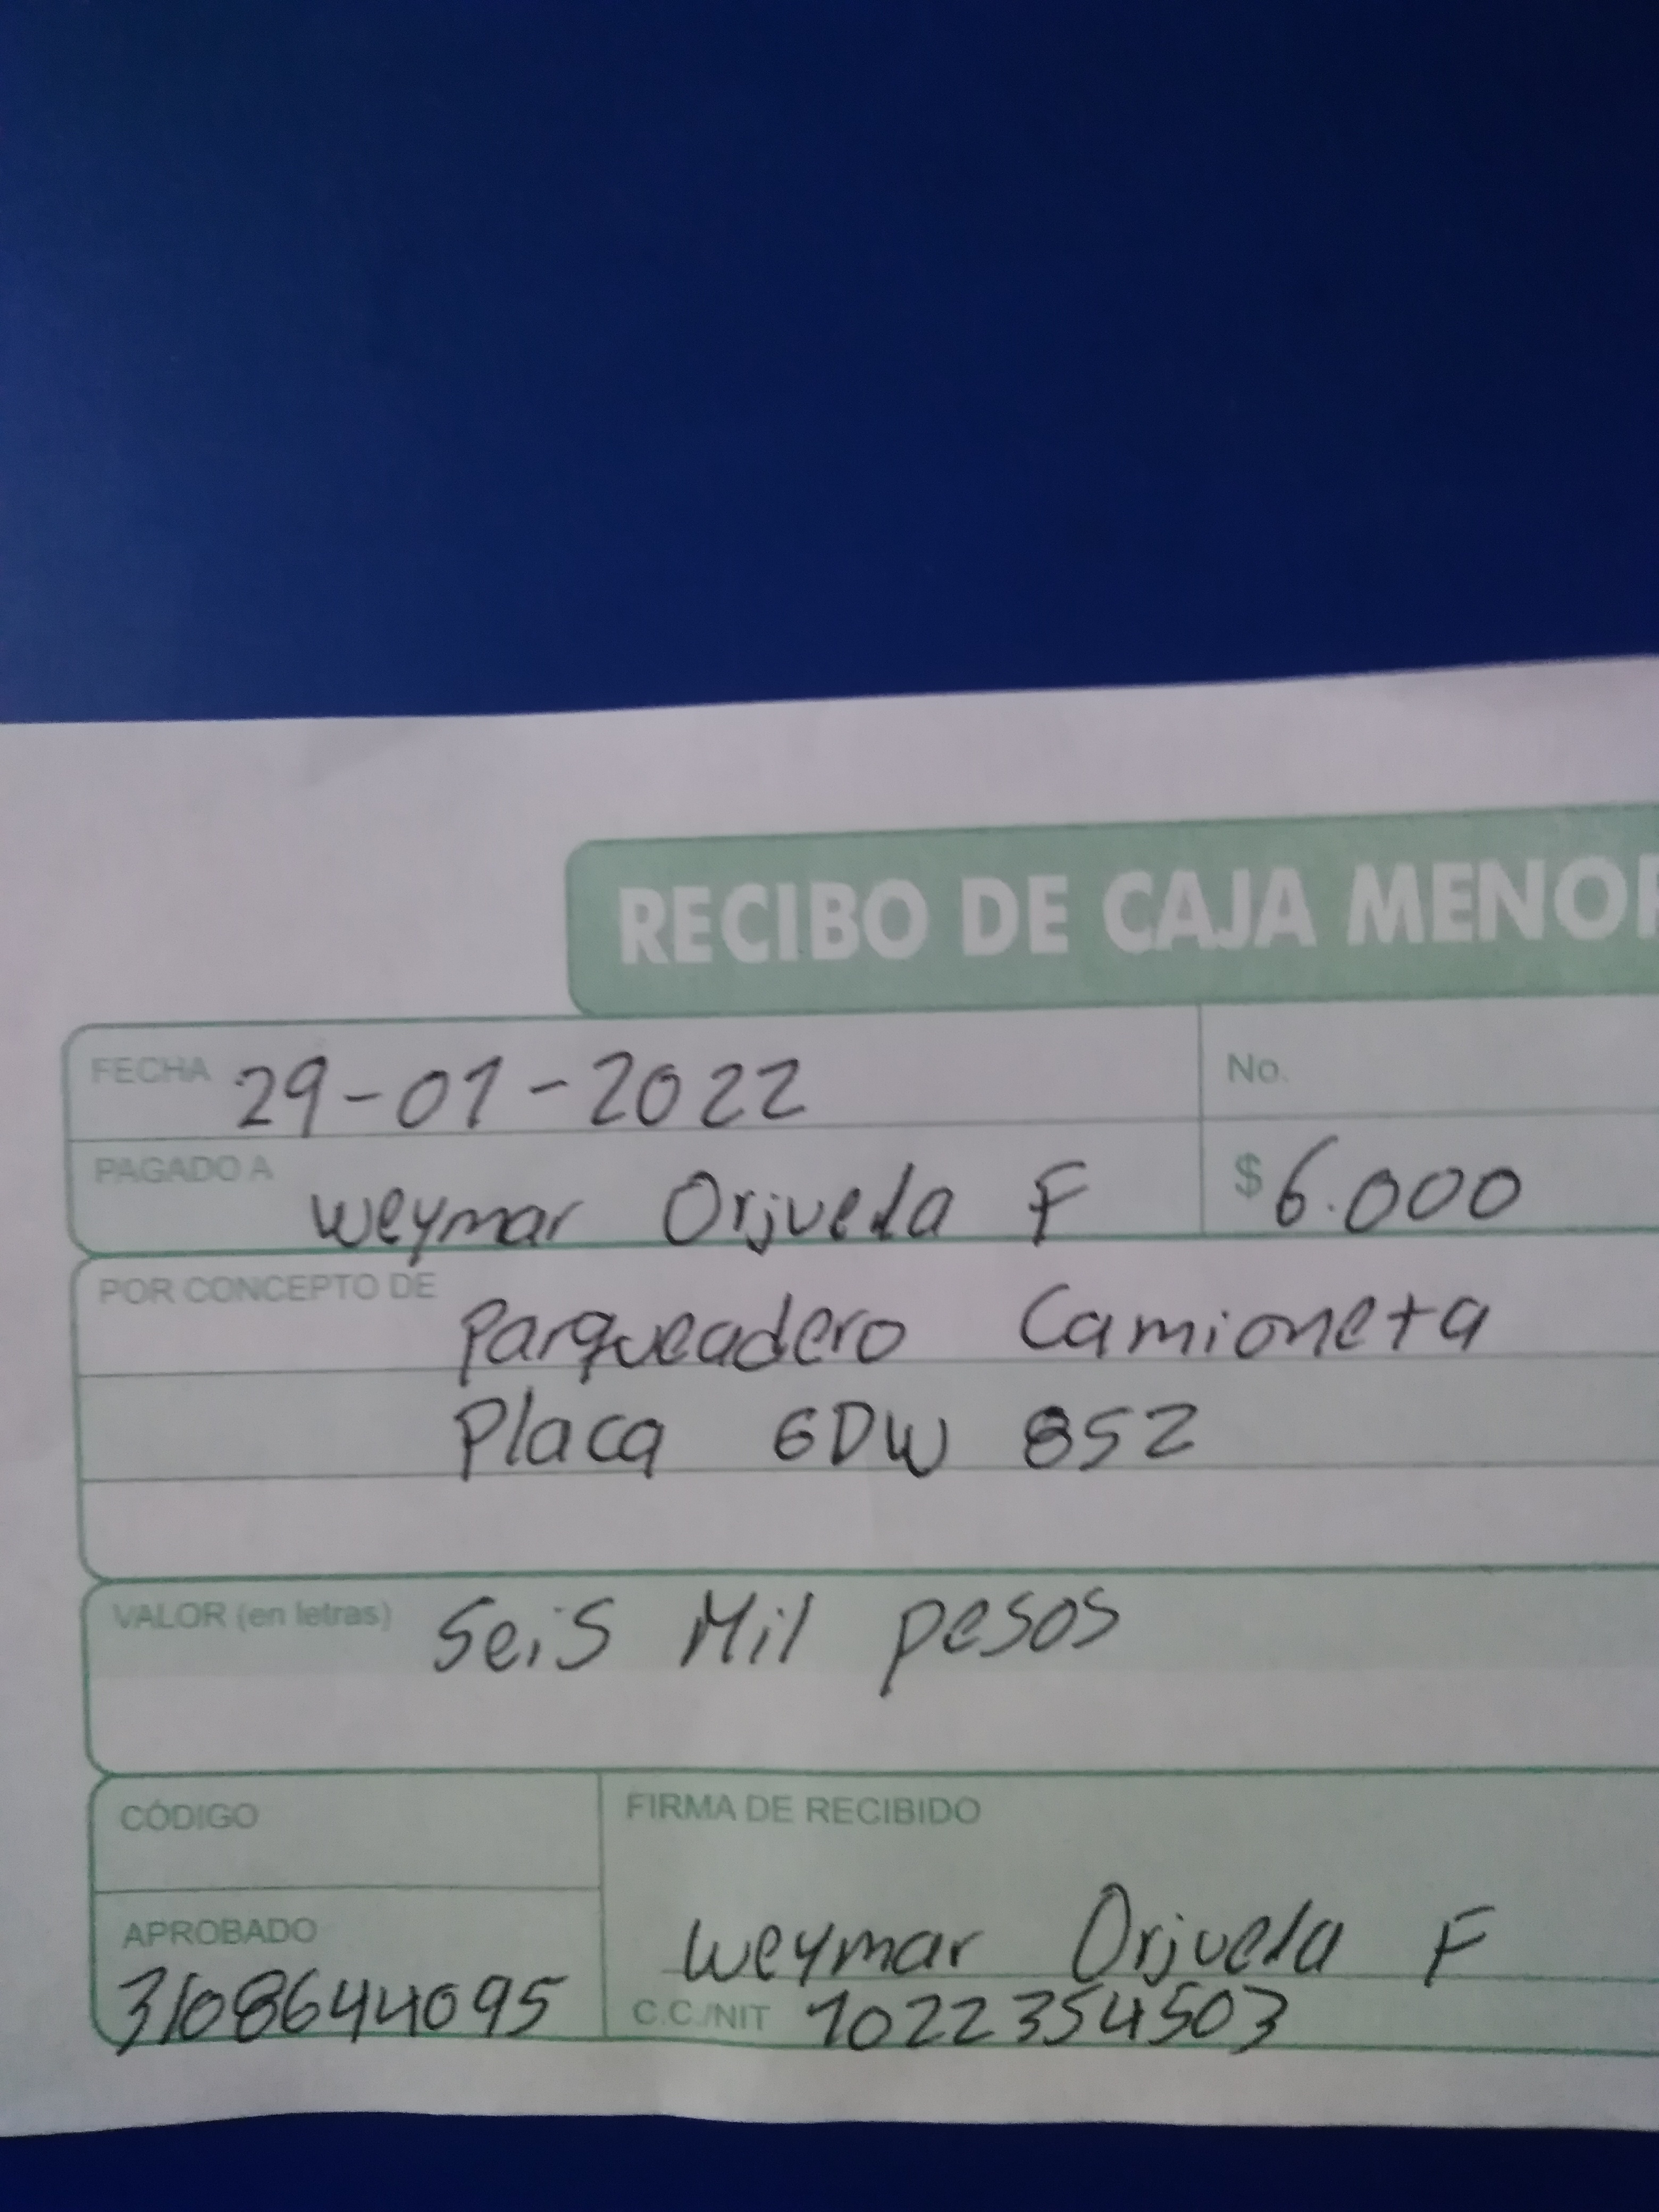 RECIBO DE CAJA MENOR
FECHA 29-01-2022 No.
PAGADO A Weymar Orjuela F $ 6.000
POR CONCEPTO DE Parqueadero Camioneta
Placa GDW 852
VALOR (en letras) Seis Mil pesos
CÓDIGO
FIRMA DE RECIBIDO
APROBADO
Weymar Orjuela F
3108644095 C.C./NIT 1022354503